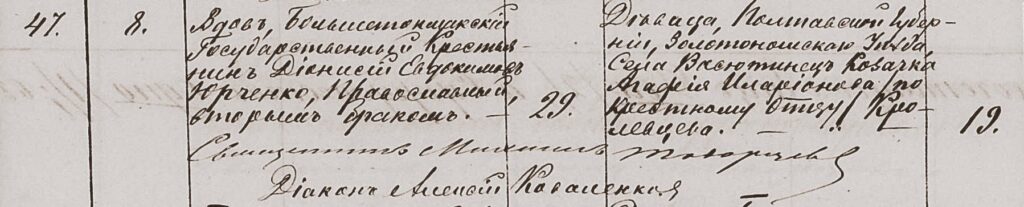 47.
8.
Вдовъ, Большетокмакскій
Государственный Кресть-
янинъ Діонисій Евдокимовъ
Юрченко, Православный,
вторымъ бракомъ. —
29.
Дѣвица, Полтавской Губер-
ніи, Золотоношскаго Уѣзда,
Села Васютинецъ Козачка
Агафія Иларіонова /по
крестному отцу/ Кро-
левцева. —
19.
Священникъ Михаилъ
Діаконъ Алексій Коваленков